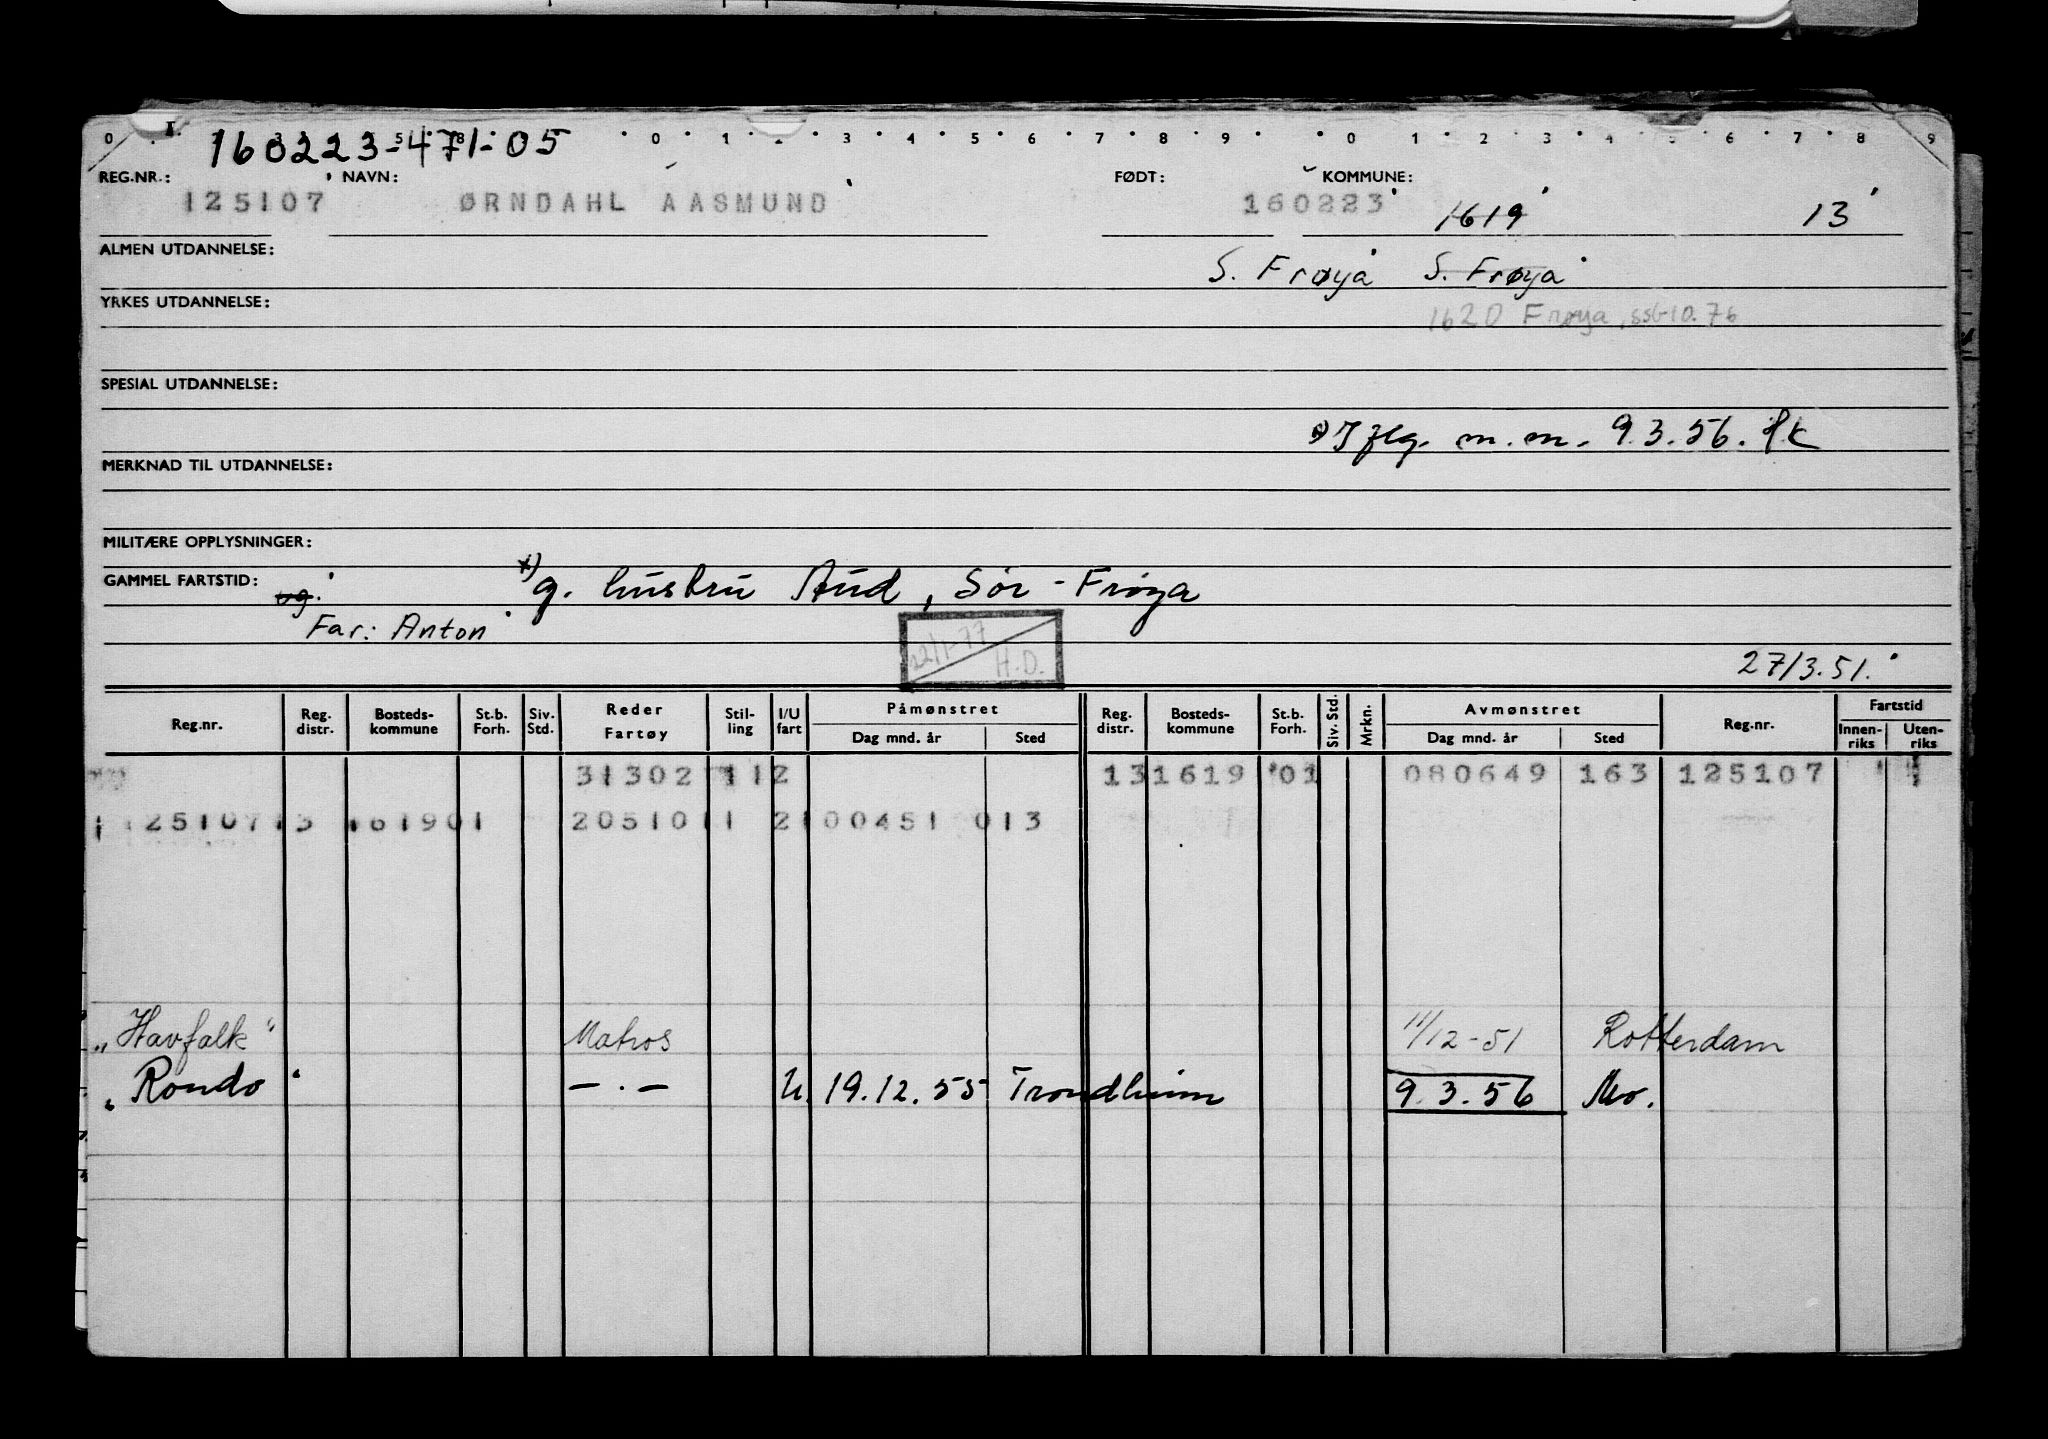 0 1. 160223-471-05 0 1 2 3 4 5 6 7 8 9 0 1 2 3 4 5 6 7 8 9
REG.NR.: NAVN: FØDT: KOMMUNE:
125107 ØRNDAHL AASMUND 160223 1619 13
ALMEN UTDANNELSE: S. Frøya S. Frøya
YRKES UTDANNELSE:
1620 Frøya, ssb-10.76
SPESIAL UTDANNELSE:
x) Iflg. m.m. 9.3.56.
MERKNAD TIL UTDANNELSE:
MILITÆRE OPPLYSNINGER:
GAMMEL FARTSTID: ug. x) g. hustru Aud, Sør-Frøya
Far: Anton
22/1-77 H.D.
27/3.51.
Reg.nr. Reg. distr. Bosteds-kommune St.b. Forh. Siv. Std. Reder Fartøy Stil-ling I/U fart Påmønstret Dag mnd. år Sted Reg. distr. Bosteds-kommune St.b. Forh. Siv. Std. Mrkn. Avmønstret Dag mnd. år Sted Reg.nr. Fartstid Innen-riks Uten-riks
31302 112 13 1619 01 080649 163 125107
125107 13 161901 205101 1 2 100451 013
"Havfalk" Matros 11/12-51 Rotterdam
"Rondo" — . — U. 19.12.55 Trondheim 9.3.56 Mo.